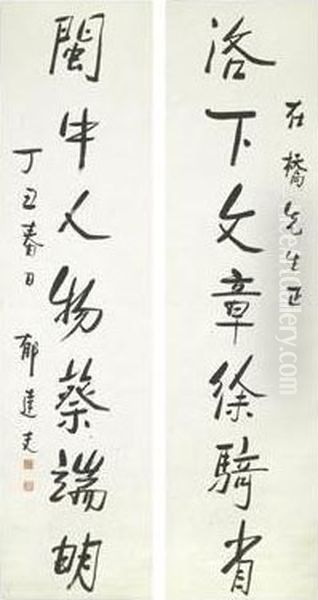 石橋先生正
洛下文章徐騎省
閩中人物蔡端明
丁丑春日 郁達夫